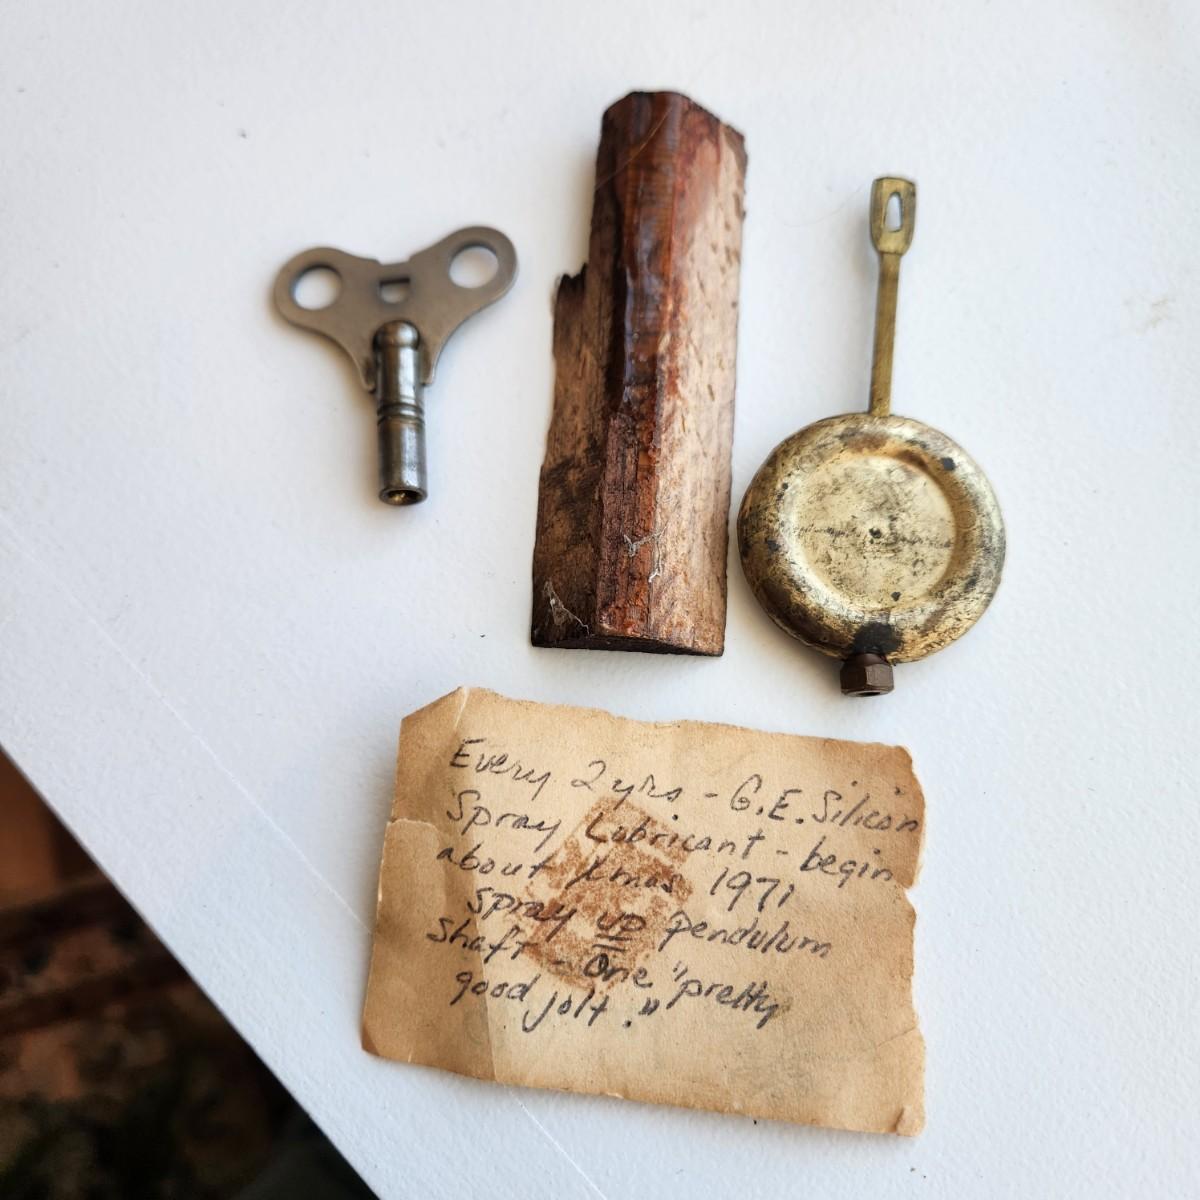 Every 2 yrs - G.E. Silicon
Spray Lubricant - begin
about Xmas 1971
Spray up pendulum
shaft - One "pretty
good jolt."